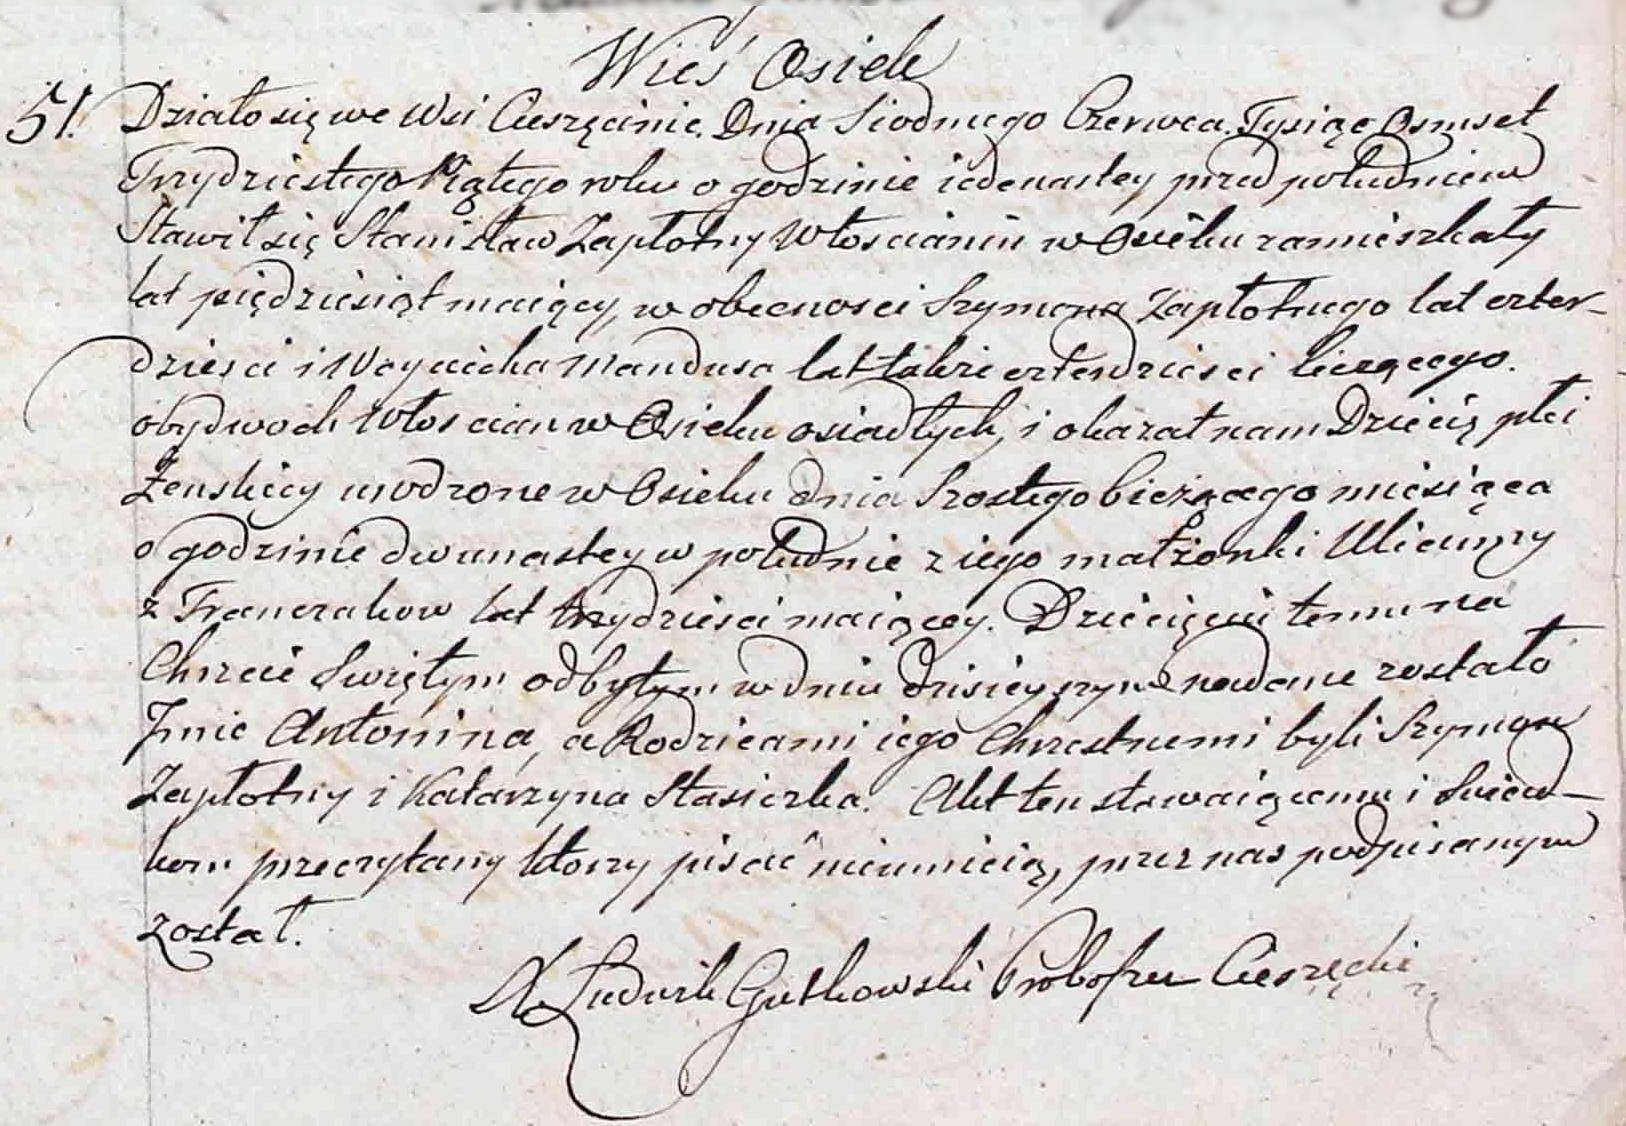 Wieś Osiek
51. Działo się we Wsi Cieszęcinie. Dnia Siodmego Czerwca Tysiąc Osmset
Trzydziestego Piątego roku o godzinie iedenastey przed południem
Stawił się Stanisław Zapłotny Włoscianin w Osieku zamieszkały
lat piędziesiąt maiący, w obecnosci Szymona Zapłotnego lat czter-
dziesci i Woyciecha Mandusa lat także czterdziesci liczącego.
obydwoch Włoscian w Osieku osiadłych, i okazał nam Dziecię płci
Zenskiey urodzone w Osieku dnia Szostego bieżącego miesiąca
o godzinie dwunastey w południe z iego małżonki
z Franczakow lat trzydziesci maiącey. Dziecięciu temu na
Chrzcie Swiętym odbytym w dniu dzisieyszym nadane zostało
Imie Antonina, a Rodzicami iego Chrzestnemi byli Szymon
Zapłotny i Katarzyna Stasiczka. Akt ten stawaiącemu i Swiad-
kom przeczytany ktorzy pisać nieumieią, przez nas podpisanym
został.
X. Ludwik Gutkowski Proboszcz Cieszęcki